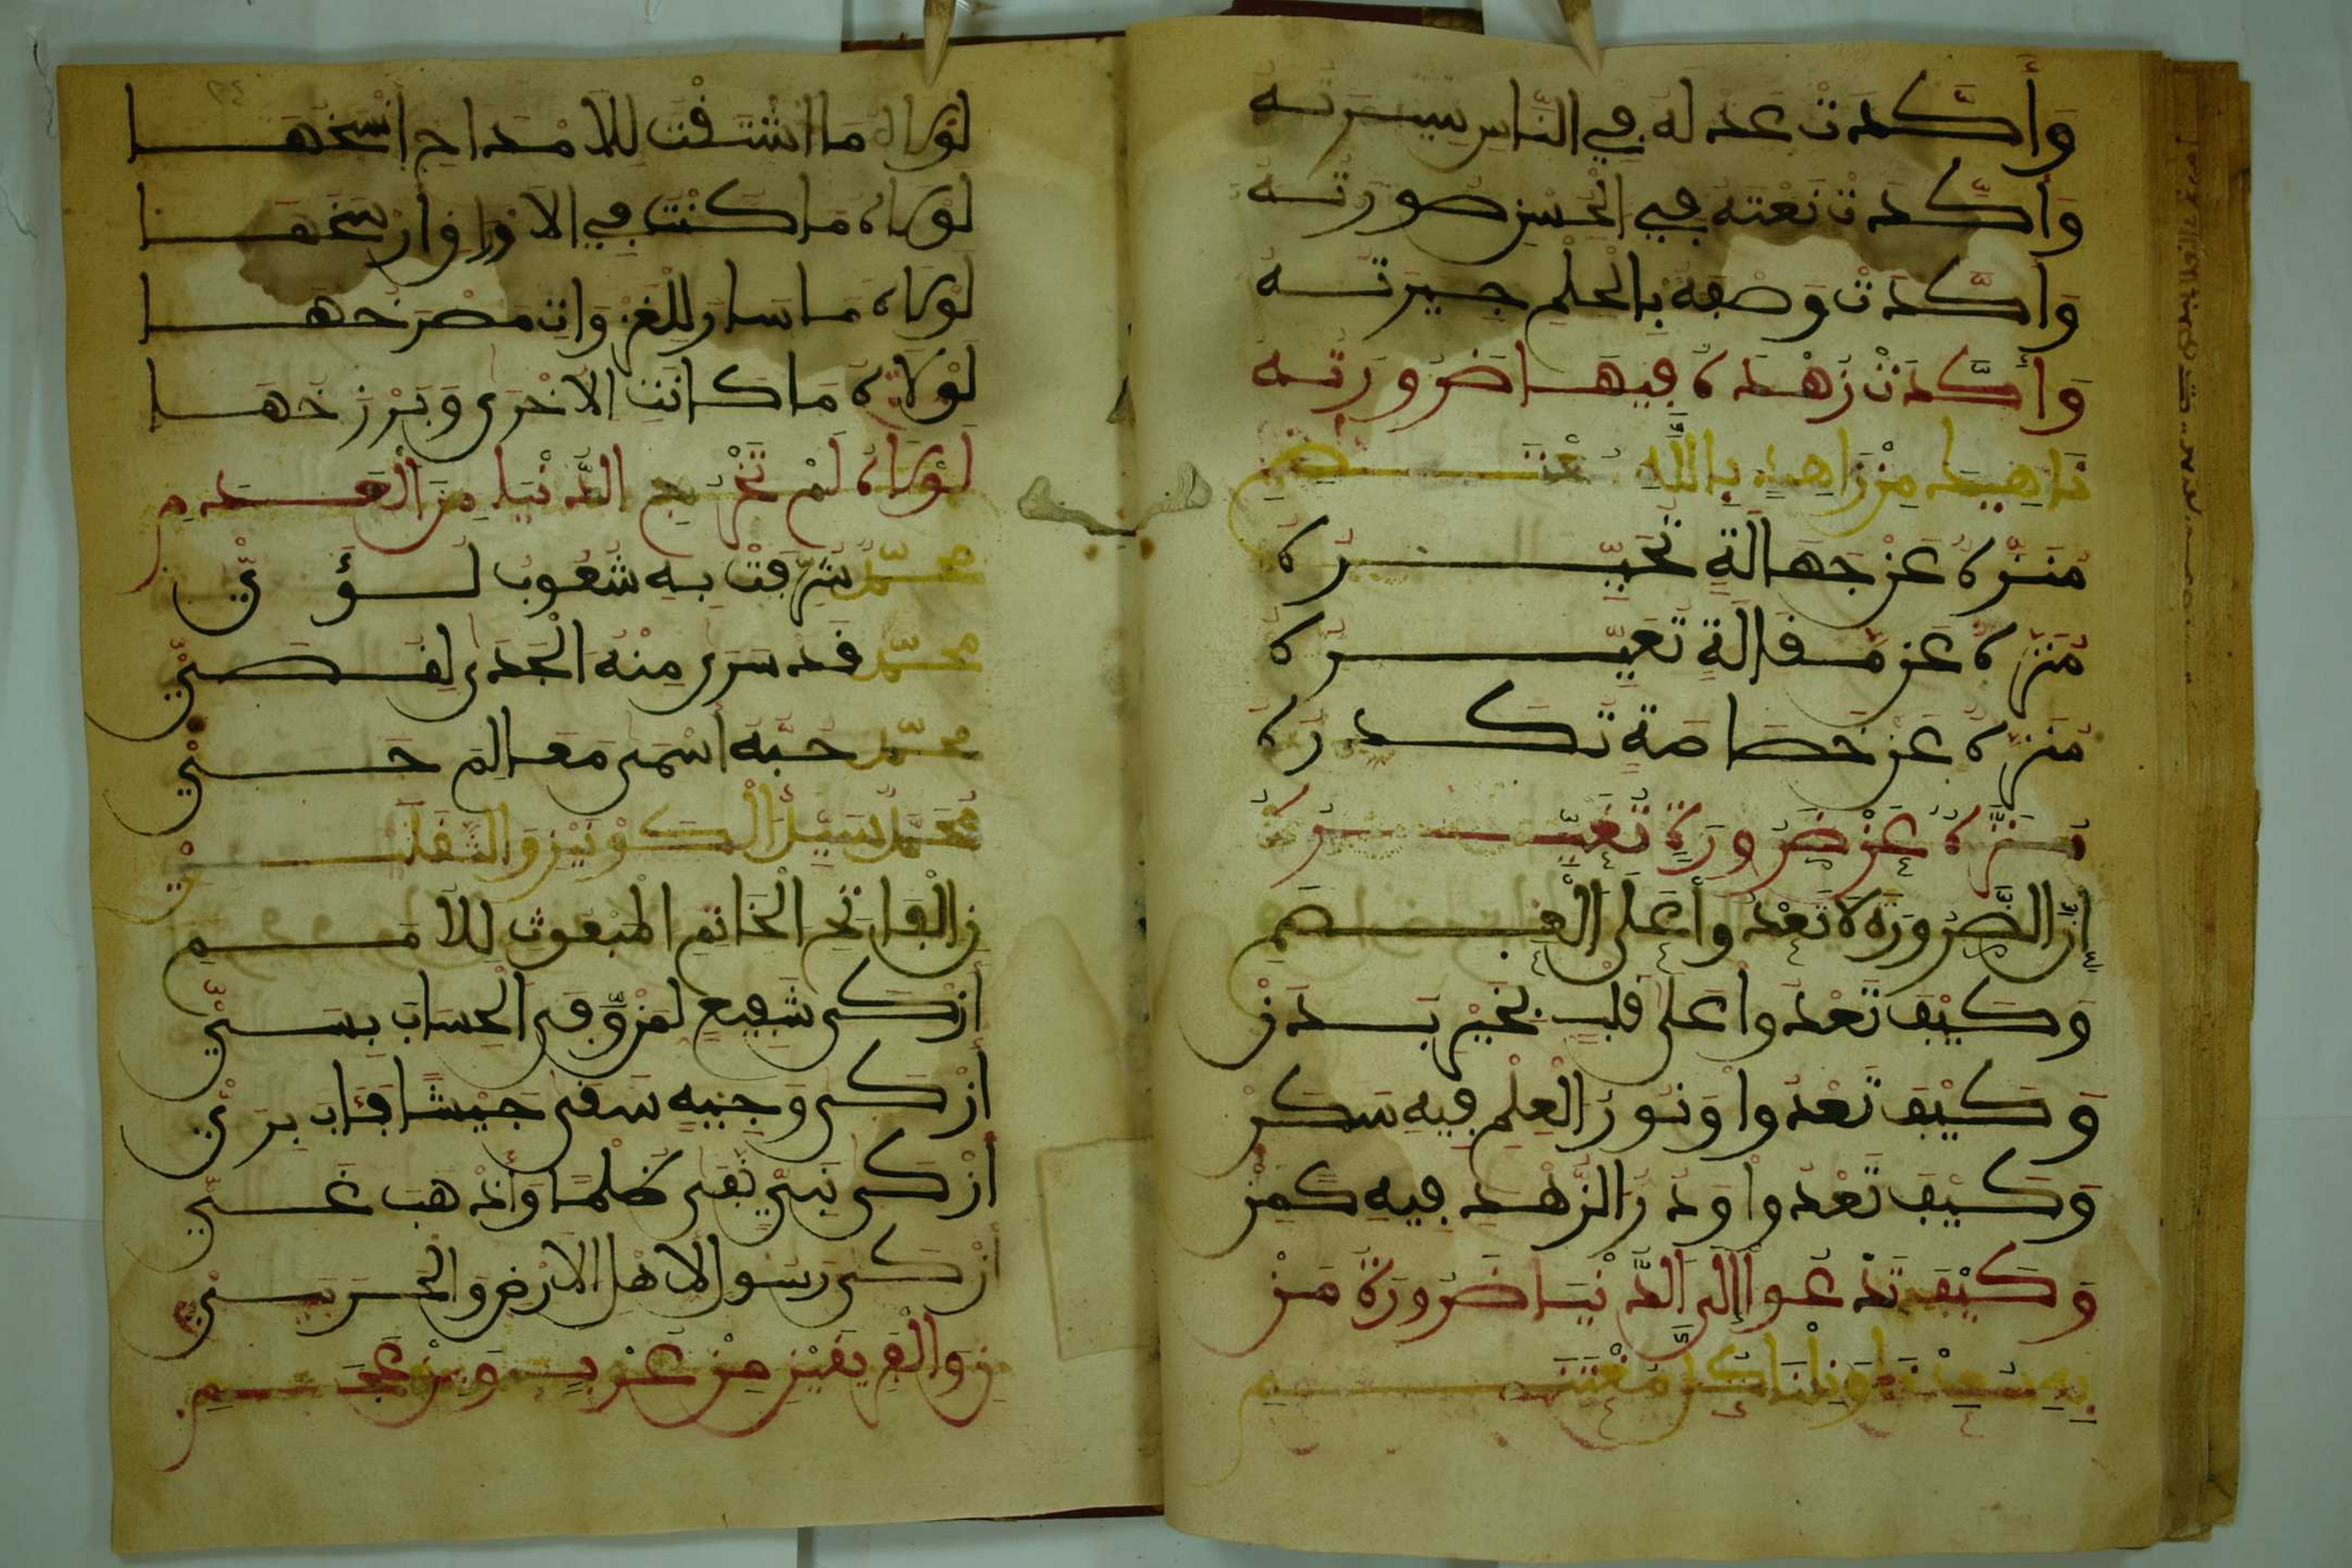 وَأَكَّدَتْ عَدْلَهُ فِي النَّاسِ سِيرَتُهُ
وَأَكَّدَتْ نَعْتَهُ فِي الْحُسْنِ صُورَتُهُ
وَأَكَّدَتْ وَصْفَهُ بِالْحِلْمِ جِيرَتُهُ
وَأَكَّدَتْ زُهْدَهُ فِيهَا ضَرُورَتُهُ
نَاهِيكَ مِنْ زَاهِدٍ بِاللَّهِ مُعْتَصِمِ
مُنَزَّهٌ عَنْ جَهَالَةٍ تُحَيِّرُهُ
مُنَزَّهٌ عَنْ مَقَالَةٍ تُعَيِّرُهُ
مُنَزَّهٌ عَنْ خَصَاصَةٍ تُكَدِّرُهُ
مُنَزَّهٌ عَنْ ضَرُورَةٍ تُغَيِّرُهُ
إِنَّ الضَّرُورَةَ لَا تَعْدُوا عَلَى الْعِصَمِ
وَكَيْفَ تَعْدُوا عَلَى قَلْبٍ بِخَيْرِ بَدَنْ
وَكَيْفَ تَعْدُوا وَنُورُ الْعِلْمِ فِيهِ سَكَنْ
وَكَيْفَ تَعْدُوا وَدُرُّ الزُّهْدِ فِيهِ كَمَنْ
وَكَيْفَ تَدْعُوا إِلَى الدُّنْيَا ضَرُورَةُ مَنْ
لَوْلَاهُ مَا اشْتَقْتُ لِلْأَمْدَاحِ أَنْسَخُهَا
لَوْلَاهُ مَا كُنْتُ فِي الْأَوْرَاقِ أَرْسَخُهَا
لَوْلَاهُ مَا سَارَ لِلْغَزْوَاتِ مُصْرَخُهَا
لَوْلَاهُ مَا كَانَتِ الْأُخْرَى وَبَرْزَخُهَا
لَوْلَاهُ لَمْ تُخْرَجِ الدُّنْيَا مِنَ الْعَدَمِ
مُحَمَّدٌ شَرُفَتْ بِهِ شُعُوبُ لُؤَيْ
مُحَمَّدٌ قَدْ سَرَى مِنْهُ الْجَدَى لِقُصَيْ
مُحَمَّدٌ حُبُّهُ أَسْمَى مَعَالِمَ حَيْ
مُحَمَّدٌ سَيِّدُ الْكَوْنَيْنِ وَالثَّقَلَيْ
نِ الْفَاتِحِ الْخَاتِمِ الْمَبْعُوثِ لِلْأُمَمِ
أَزْكَى شَفِيعٍ لِمَنْ وَفَى الْحِسَابَ بِسَيْ
أَزْكَى وَجِيهٍ سَقَى جَيْشًا فَآبَ بِرَيْ
أَزْكَى نَبِيٍّ نَفَى ظُلْمًا وَأَذْهَبَ غَيْ
أَزْكَى رَسُولٍ لِأَهْلِ الْأَرْضِ وَالْحَرَمَيْ
نِ وَالْفَرِيقَيْنِ مِنْ عُرْبٍ وَمِنْ عَجَمِ